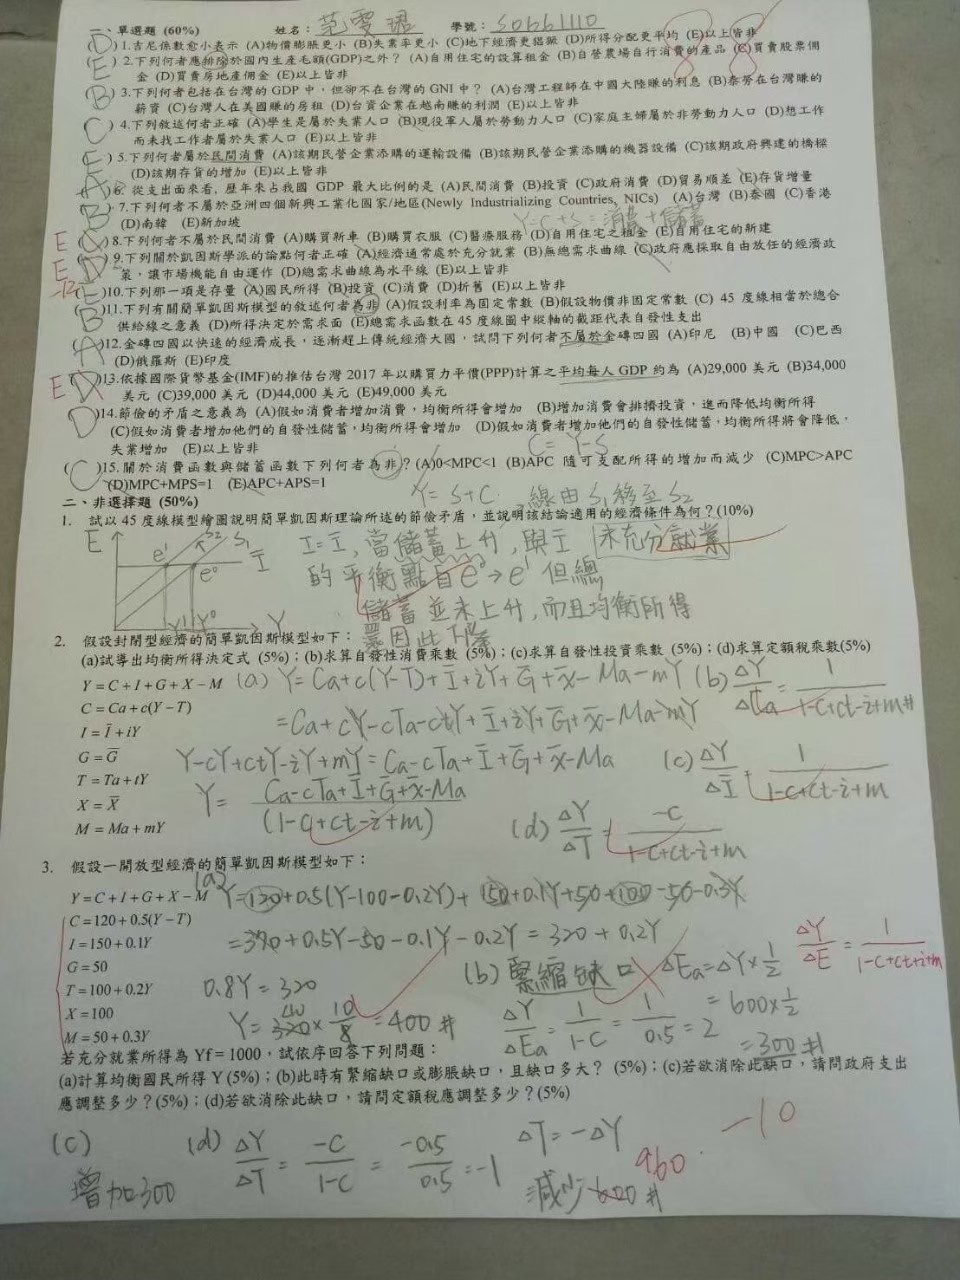 一、單選題 (60%) 姓名： 范雯珺 學號： S0661110
(D) 1.吉尼係數愈小表示 (A)物價膨脹更小 (B)失業率更小 (C)地下經濟更猖獗 (D)所得分配更平均 (E)以上皆非
(E) 2.下列何者應排除於國內生產毛額(GDP)之外？ (A)自用住宅的設算租金 (B)自營農場自行消費的產品 (C)買賣股票佣
金 (D)買賣房地產佣金 (E)以上皆非
(B) 3.下列何者包括在台灣的 GDP 中，但卻不在台灣的 GNI 中？ (A)台灣工程師在中國大陸賺的利息 (B)泰勞在台灣賺的
薪資 (C)台灣人在美國賺的房租 (D)台資企業在越南賺的利潤 (E)以上皆非
(C) 4.下列敘述何者正確 (A)學生是屬於失業人口 (B)現役軍人屬於勞動力人口 (C)家庭主婦屬於非勞動力人口 (D)想工作
而未找工作者屬於失業人口 (E)以上皆非
(E) 5.下列何者屬於民間消費 (A)該期民營企業添購的運輸設備 (B)該期民營企業添購的機器設備 (C)該期政府興建的橋樑
(D)該期存貨的增加 (E)以上皆非
(A) 6. 從支出面來看，歷年來占我國 GDP 最大比例的是 (A)民間消費 (B)投資 (C)政府消費 (D)貿易順差 (E)存貨增量
(B) 7.下列何者不屬於亞洲四個新興工業化國家/地區(Newly Industrializing Countries, NICs) (A)台灣 (B)泰國 (C)香港
(D)南韓 (E)新加坡 Y=C+S=消費+儲蓄
E ( ) 8.下列何者不屬於民間消費 (A)購買新車 (B)購買衣服 (C)醫療服務 (D)自用住宅之租金 (E)自用住宅的新建
E (D) 9.下列關於凱因斯學派的論點何者正確 (A)經濟通常處於充分就業 (B)無總需求曲線 (C)政府應採取自由放任的經濟政
策，讓市場機能自由運作 (D)總需求曲線為水平線 (E)以上皆非
-12 (E)10.下列那一項是存量 (A)國民所得 (B)投資 (C)消費 (D)折舊 (E)以上皆非
(B)11.下列有關簡單凱因斯模型的敘述何者為非 (A)假設利率為固定常數 (B)假設物價非固定常數 (C) 45 度線相當於總合
供給線之意義 (D)所得決定於需求面 (E)總需求函數在 45 度線圖中縱軸的截距代表自發性支出
(A)12.金磚四國以快速的經濟成長，逐漸趕上傳統經濟大國，試問下列何者不屬於金磚四國 (A)印尼 (B)中國 (C)巴西
(D)俄羅斯 (E)印度
E ( )13.依據國際貨幣基金(IMF)的推估台灣 2017 年以購買力平價(PPP)計算之平均每人 GDP 約為 (A)29,000 美元 (B)34,000
美元 (C)39,000 美元 (D)44,000 美元 (E)49,000 美元
(D)14.節儉的矛盾之意義為 (A)假如消費者增加消費，均衡所得會增加 (B)增加消費會排擠投資，進而降低均衡所得
(C)假如消費者增加他們的自發性儲蓄，均衡所得會增加 (D)假如消費者增加他們的自發性儲蓄，均衡所得將會降低，
失業增加 (E)以上皆非 C = Y-S
(C)15.關於消費函數與儲蓄函數下列何者為非？(A)0<MPC<1 (B)APC 隨可支配所得的增加而減少 (C)MPC>APC
(D)MPC+MPS=1 (E)APC+APS=1 Y=S+C 線由S1移至S2
二、非選擇題 (50%)
1. 試以 45 度線模型繪圖說明簡單凱因斯理論所述的節儉矛盾，並說明該結論適用的經濟條件為何？(10%)
E S2 S1 Ī e' e⁰ Y' Y⁰ Y
I=Ī, 當儲蓄上升，與I 未充分就業
的平衡點自e⁰→e' 但總
儲蓄並未上升，而且均衡所得
因此下降
2. 假設封閉型經濟的簡單凱因斯模型如下：
(a)試導出均衡所得決定式 (5%)；(b)求算自發性消費乘數 (5%)；(c)求算自發性投資乘數 (5%)；(d)求算定額稅乘數(5%)
Y = C + I + G + X − M (a) Y=Ca+c(Y-T)+Ī+iY+Ḡ+x̄-Ma-mY (b) ΔY/ΔCa = 1/1-c+ct-i+m #
C = Ca + c(Y − T) =Ca+cY-cTa-ctY+Ī+iY+Ḡ+x̄-Ma-mY
I = Ī + iY
G = Ḡ Y-cY+ctY-iY+mY=Ca-cTa+Ī+Ḡ+x̄-Ma (c) ΔY/ΔĪ = 1/1-c+ct-i+m
T = Ta + tY
X = X̄ Y= Ca-cTa+Ī+Ḡ+x̄-Ma/(1-c+ct-i+m)
M = Ma + mY (d) ΔY/ΔT = -c/1-c+ct-i+m
3. 假設一開放型經濟的簡單凱因斯模型如下：
Y = C + I + G + X − M (a) Y=120+0.5(Y-100-0.2Y)+150+0.1Y+50+100-50-0.3Y
C = 120 + 0.5(Y − T)
I = 150 + 0.1Y =370+0.5Y-50-0.1Y-0.2Y = 320+0.2Y ΔY/ΔE = 1/1-c+ct-i+m
G = 50 (b) 緊縮缺口 ΔEa=ΔY×1/2
T = 100 + 0.2Y 0.8Y=320 =600×1/2
X = 100 Y=320×10/8=400 # ΔY/ΔEa=1/1-C=1/0.5=2
M = 50 + 0.3Y =300 #
若充分就業所得為 Yf = 1000，試依序回答下列問題：
(a)計算均衡國民所得 Y (5%)；(b)此時有緊縮缺口或膨脹缺口，且缺口多大？ (5%)；(c)若欲消除此缺口，請問政府支出
應調整多少？(5%)；(d)若欲消除此缺口，請問定額稅應調整多少？(5%)
-10
(c) (d) ΔY/ΔT = -C/1-C = -0.5/0.5 = -1 ΔT=-ΔY
增加300 減少600 # 960